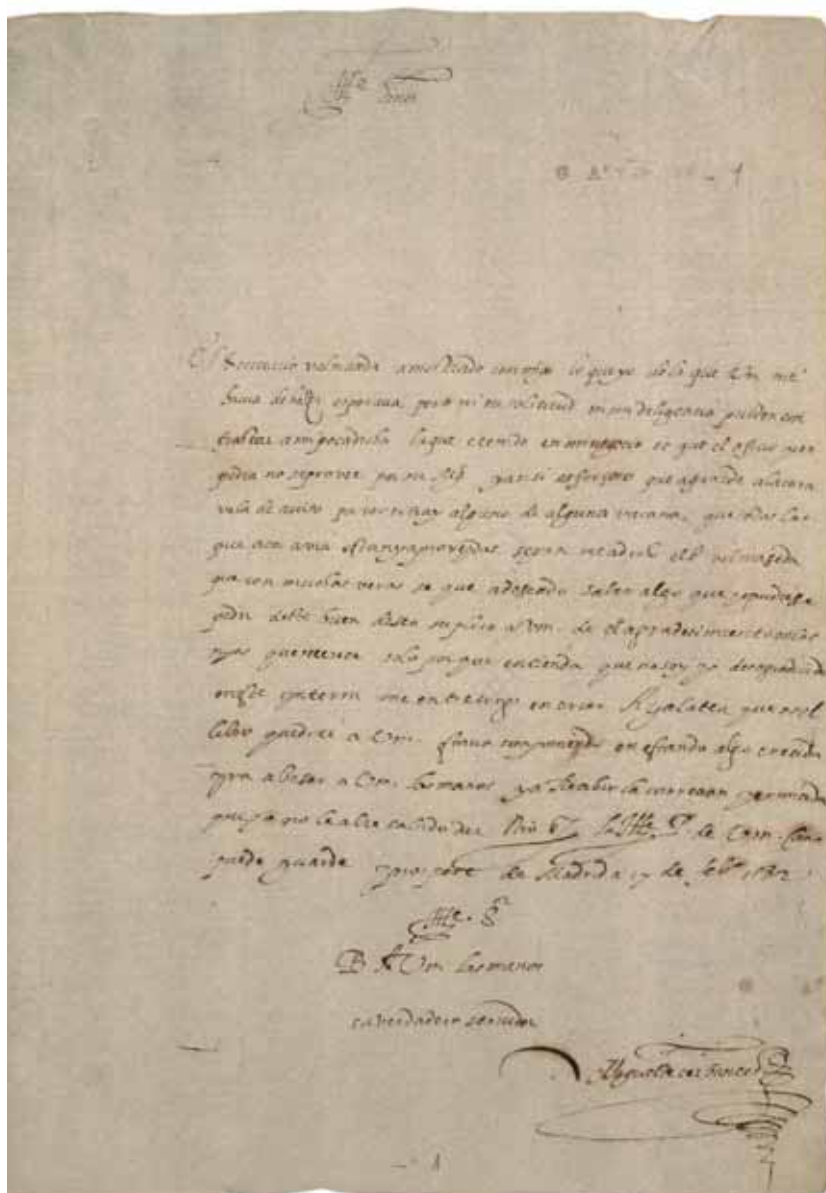 Ille Señor
1
El secretario valmaseda a mostrado conmigo lo que yo de la que Vm. me
havia de hazer esperava, pero ni su solicitud ni mi diligencia pueden con
trastar a mi poca dicha la que e tenido en mi negocio es que el oficio que
pedia no se provee por su Md. y ansi es forçoso que aguarde a la cara
vela de aviso por ver si tray alguno de alguna vacante, que todas las
que aca avia estan ya proveydas segun me a dicho el sr valmaseda
que con muchas veras se que a deseado saber algo que yo pudiese
pedir deste buen deseo suplico a Vm. de el agradecimiento en las
que merece solo porque entienda que no soy yo desagradecido
en este ynterin me entretengo en criar a galatea que es el
libro que dixe a Vm. estava componiendo en estando algo crecida
yra a besar a Vm. las manos y a Recibir la correcion y enmienda
que yo no le abre sabido dar Nro Sr la Ille Pa de Vm. como
puede guarde y prospere de Madrid a 17 de febo 1582
Ille Sr
B A Vm las manos
su verdadero servidor
Miguel de cerbantes